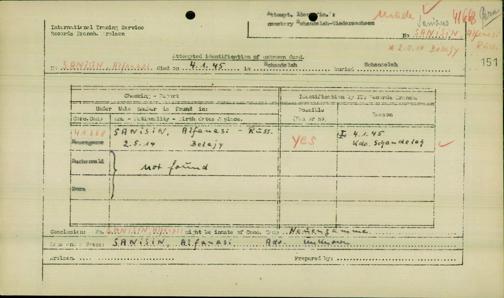 International Tracing Service
Records Branch. Arolsen
Attempt. Identific's.
cemetery Schandelah-Niedersachsen
made
Sanisin
No SANISIN, Alfanasi
Russ.
* 2.5.14 Belajy
151
Attempted identification of unknown dead.
No SANISIN, Alfanasi died on 4.1.45 in Schandelah buried Schandelah
Checking Report
Identification by ITS Records Branch
Under Make Number is found in
Possible
Conc. Camp Name - Nationality - Birth dates & place.
Yes or no.
Reason
SANISIN, Alfanasi - Russ.
YES
4.1.45
Neuengamme 2.5.14 Belajy
Kdo. Schandelah
Buchenwald
not found
Dora
Conclusion: No. SANISIN, Alfanasi might be inmate of Conc. Camp Neuengamme
Name SANISIN, Alfanasi Adr. unknown
Arolsen.
Prepared by: